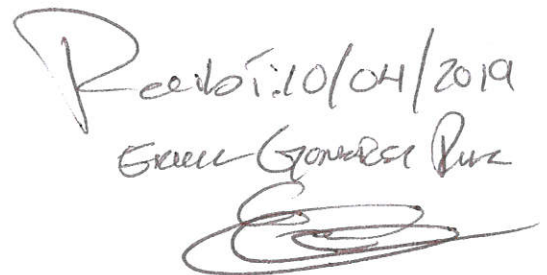 Recibí: 10/04/2019
González Ruiz